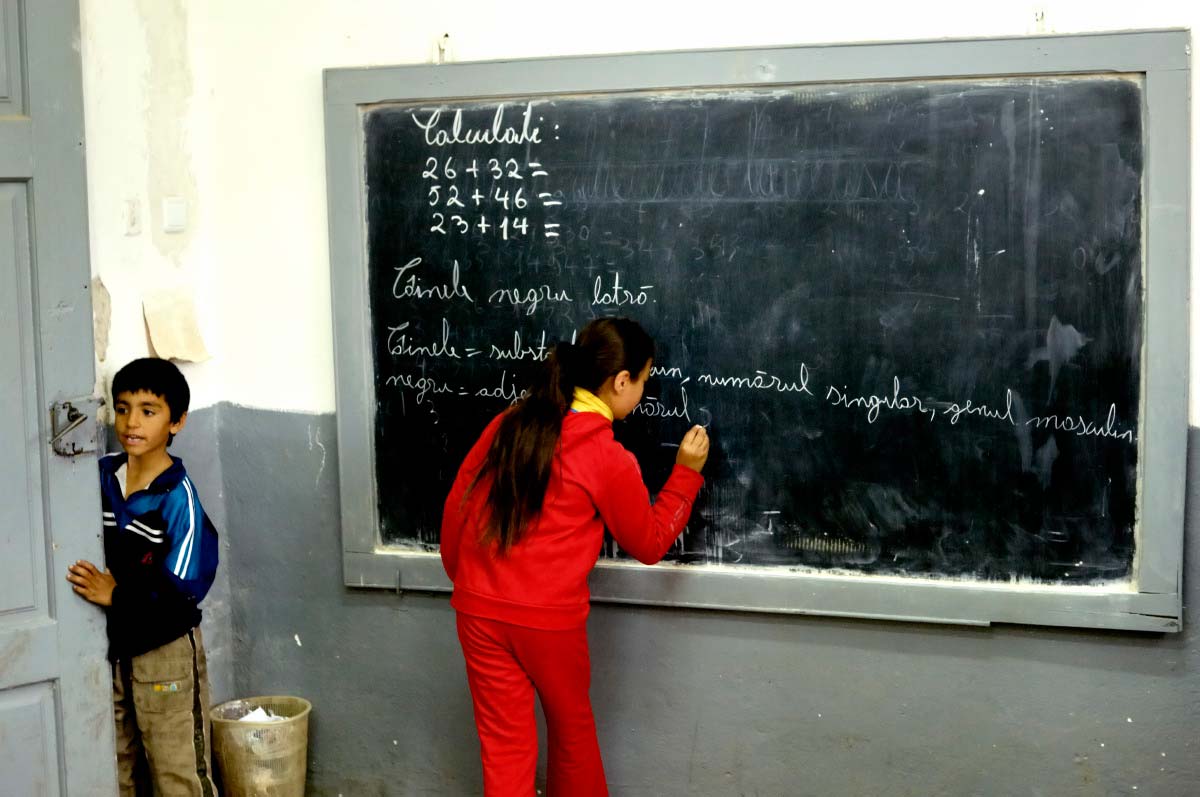 Calculati:
26 + 32 =
52 + 46 =
23 + 14 =
Câinele negru latră.
Câinele = subst mun, numărul singular, genul masculin.
negru = adje mărul